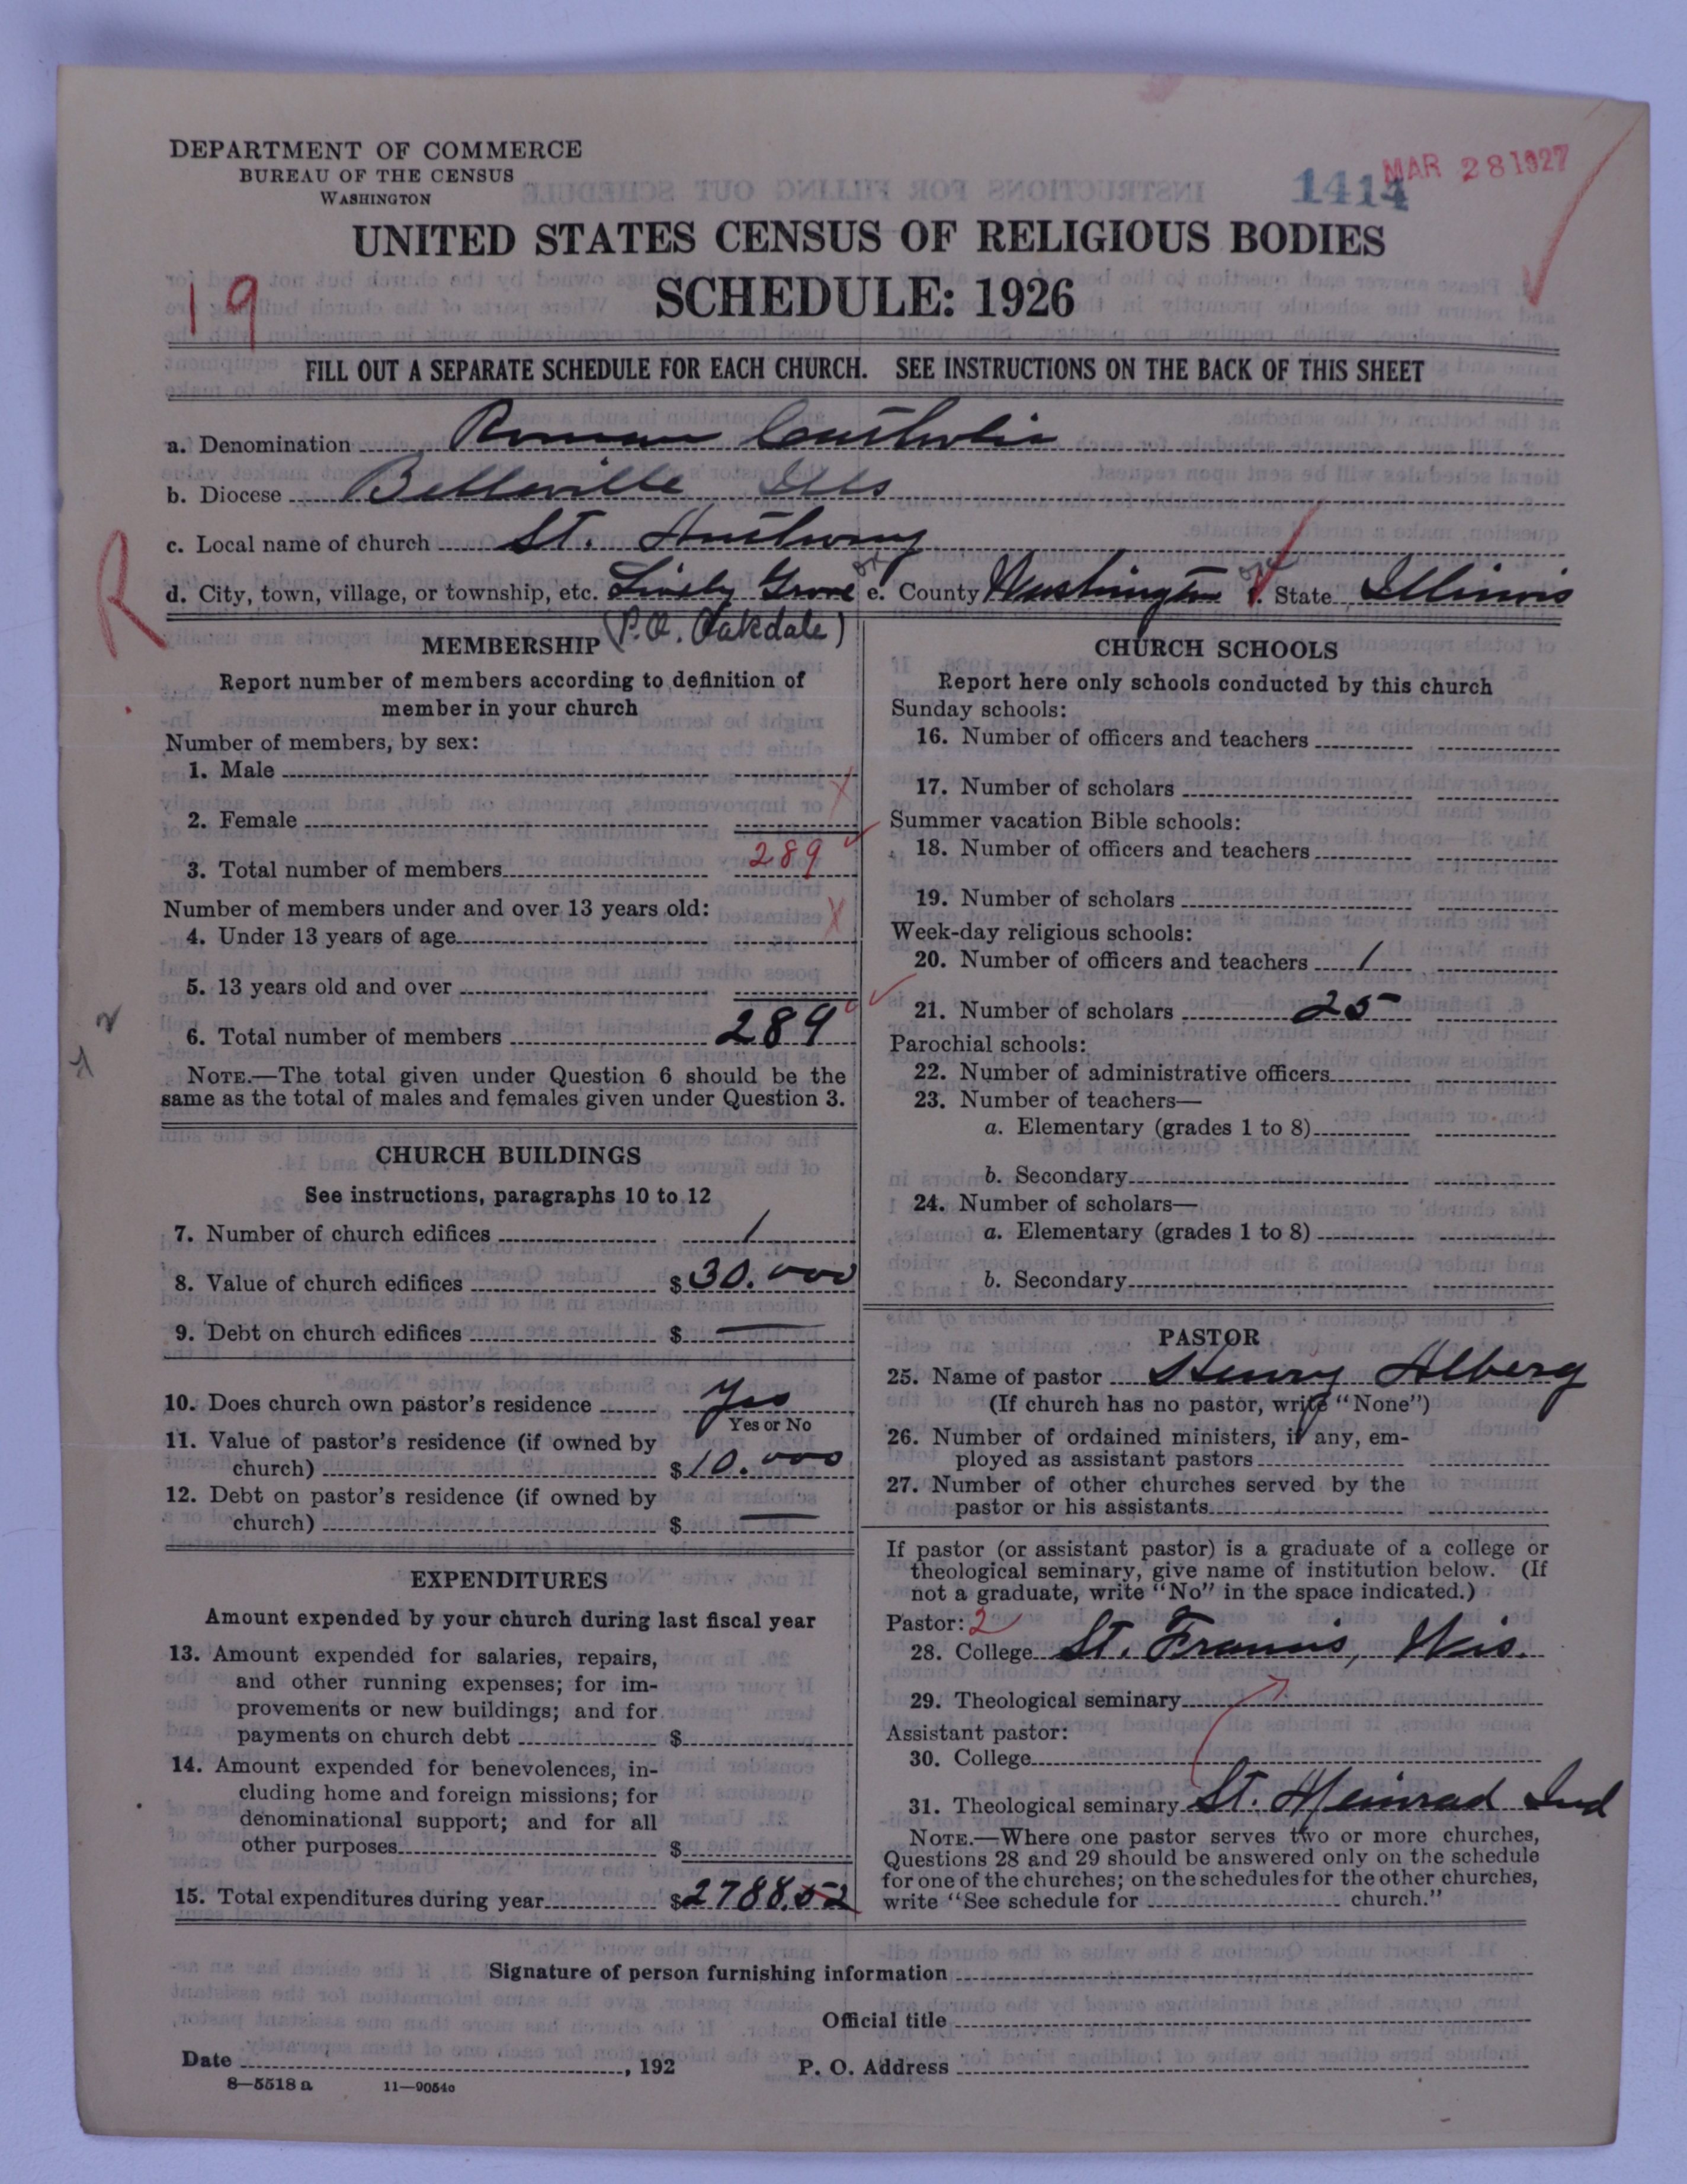 DEPARTMENT OF COMMERCE
BUREAU OF THE CENSUS
WASHINGTON
1414
MAR 28 1927
UNITED STATES CENSUS OF RELIGIOUS BODIES
SCHEDULE: 1926
19
FILL OUT A SEPARATE SCHEDULE FOR EACH CHURCH. SEE INSTRUCTIONS ON THE BACK OF THIS SHEET
a. Denomination Roman Catholic
b. Diocese Belleville Ills
c. Local name of church St. Anthony
R
d. City, town, village, or township, etc. Lively Grove e. County Washington f. State Illinois
(P.O. Oakdale)
MEMBERSHIP
Report number of members according to definition of
member in your church
Number of members, by sex:
1. Male
2. Female
3. Total number of members 289
Number of members under and over 13 years old:
4. Under 13 years of age
5. 13 years old and over
6. Total number of members 289
NOTE.—The total given under Question 6 should be the
same as the total of males and females given under Question 3.
CHURCH BUILDINGS
See instructions, paragraphs 10 to 12
7. Number of church edifices 1
8. Value of church edifices $30.000
9. Debt on church edifices $ —
10. Does church own pastor's residence Yes
Yes or No
11. Value of pastor's residence (if owned by
church) $10.000
12. Debt on pastor's residence (if owned by
church) $ —
EXPENDITURES
Amount expended by your church during last fiscal year
13. Amount expended for salaries, repairs,
and other running expenses; for im-
provements or new buildings; and for
payments on church debt $
14. Amount expended for benevolences, in-
cluding home and foreign missions; for
denominational support; and for all
other purposes $
15. Total expenditures during year $2788.52
CHURCH SCHOOLS
Report here only schools conducted by this church
Sunday schools:
16. Number of officers and teachers
17. Number of scholars
Summer vacation Bible schools:
18. Number of officers and teachers
19. Number of scholars
Week-day religious schools:
20. Number of officers and teachers 1
21. Number of scholars 25
Parochial schools:
22. Number of administrative officers
23. Number of teachers—
a. Elementary (grades 1 to 8)
b. Secondary
24. Number of scholars—
a. Elementary (grades 1 to 8)
b. Secondary
PASTOR
25. Name of pastor Henry Alberg
(If church has no pastor, write "None")
26. Number of ordained ministers, if any, em-
ployed as assistant pastors
27. Number of other churches served by the
pastor or his assistants
If pastor (or assistant pastor) is a graduate of a college or
theological seminary, give name of institution below. (If
not a graduate, write "No" in the space indicated.)
Pastor: 2
28. College St. Francis, Wis.
29. Theological seminary
Assistant pastor:
30. College
31. Theological seminary St. Meinrad Ind
NOTE.—Where one pastor serves two or more churches,
Questions 28 and 29 should be answered only on the schedule
for one of the churches; on the schedules for the other churches,
write "See schedule for church."
Signature of person furnishing information
Official title
Date , 192
P. O. Address
8—5518 a 11—9054c